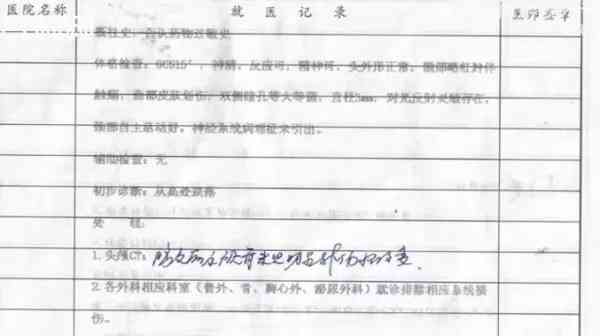 医院名称 就 医 记 录 医师签字
既往史：否认药物过敏史
体格检查：GCS15'，神清，反应可，精神可，头外形正常，颈部略红肿伴
触痛，面部皮肤划伤，双侧瞳孔等大等圆，直径3mm，对光反射灵敏存在，
颈部自主活动好，神经系统病理征未引出。
辅助检查：无
初步诊断：从高处跌落
处 理：
1.头颅CT：
2.各外科相应科室（普外、骨、胸心外、泌尿外科）就诊排除相应系统损
伤。